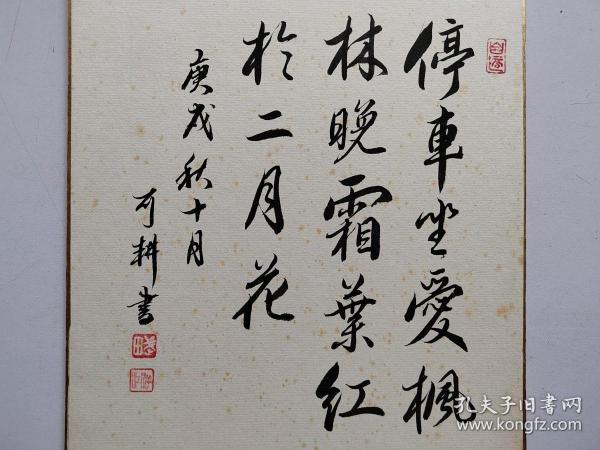 停車坐愛楓
林晚霜葉紅
於二月花
庚戌秋十月
可耕書
孔夫子旧书网
www.kongfz.com